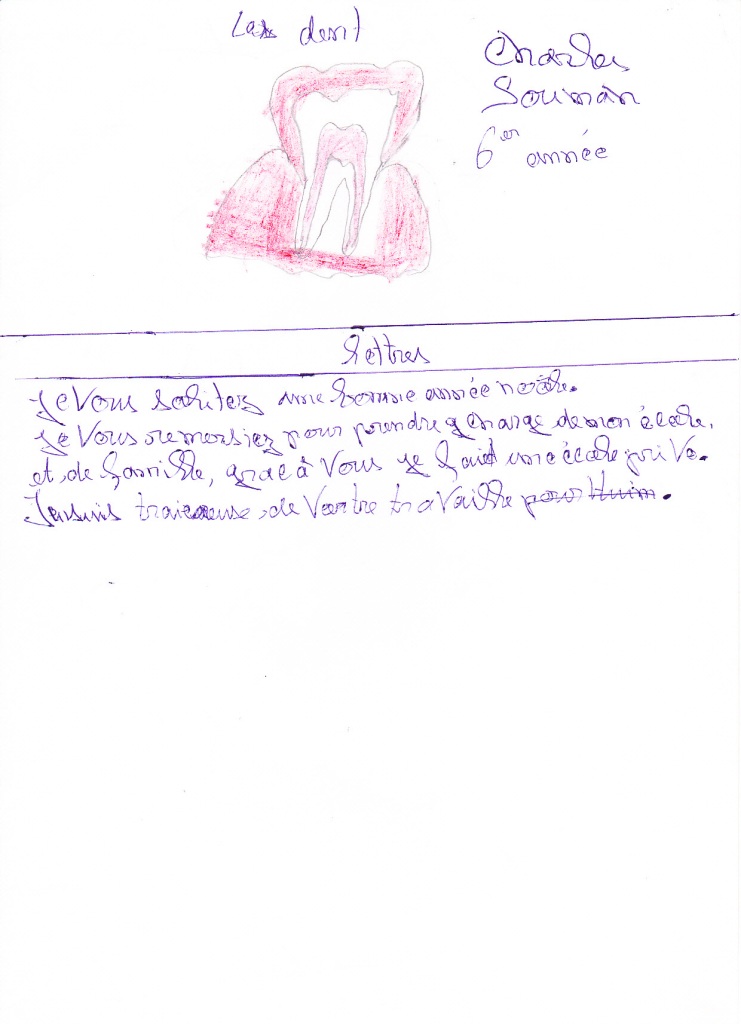 La dent
Charles
Souman
6er année
Lettres
Je vous sahitez une bonne année noële.
Je vous remersiez pour prendre charge de mon école.
et de famille, grac à vous je fait une école privé.
Je suis de votre travaille